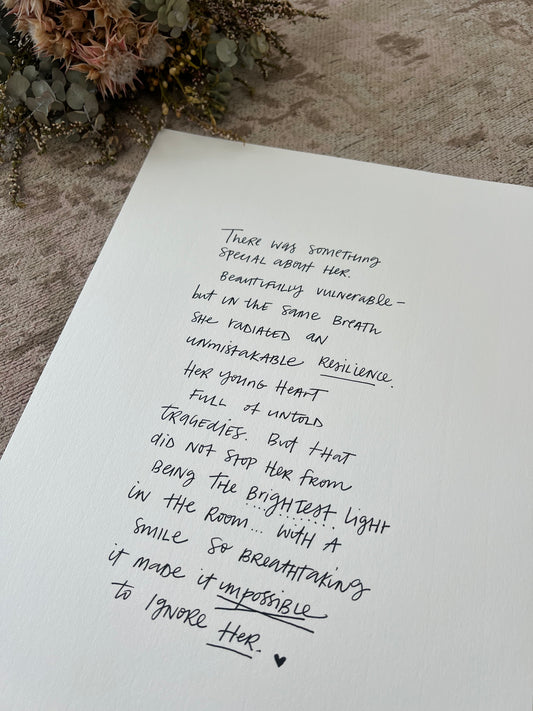 There was something
special about her.
Beautifully vulnerable –
but in the same breath
she radiated an
unmistakable resilience.
Her young heart
full of untold
tragedies. But that
did not stop her from
being the brightest light
in the room... with a
smile so breathtaking
it made it impossible
to ignore her. ♥